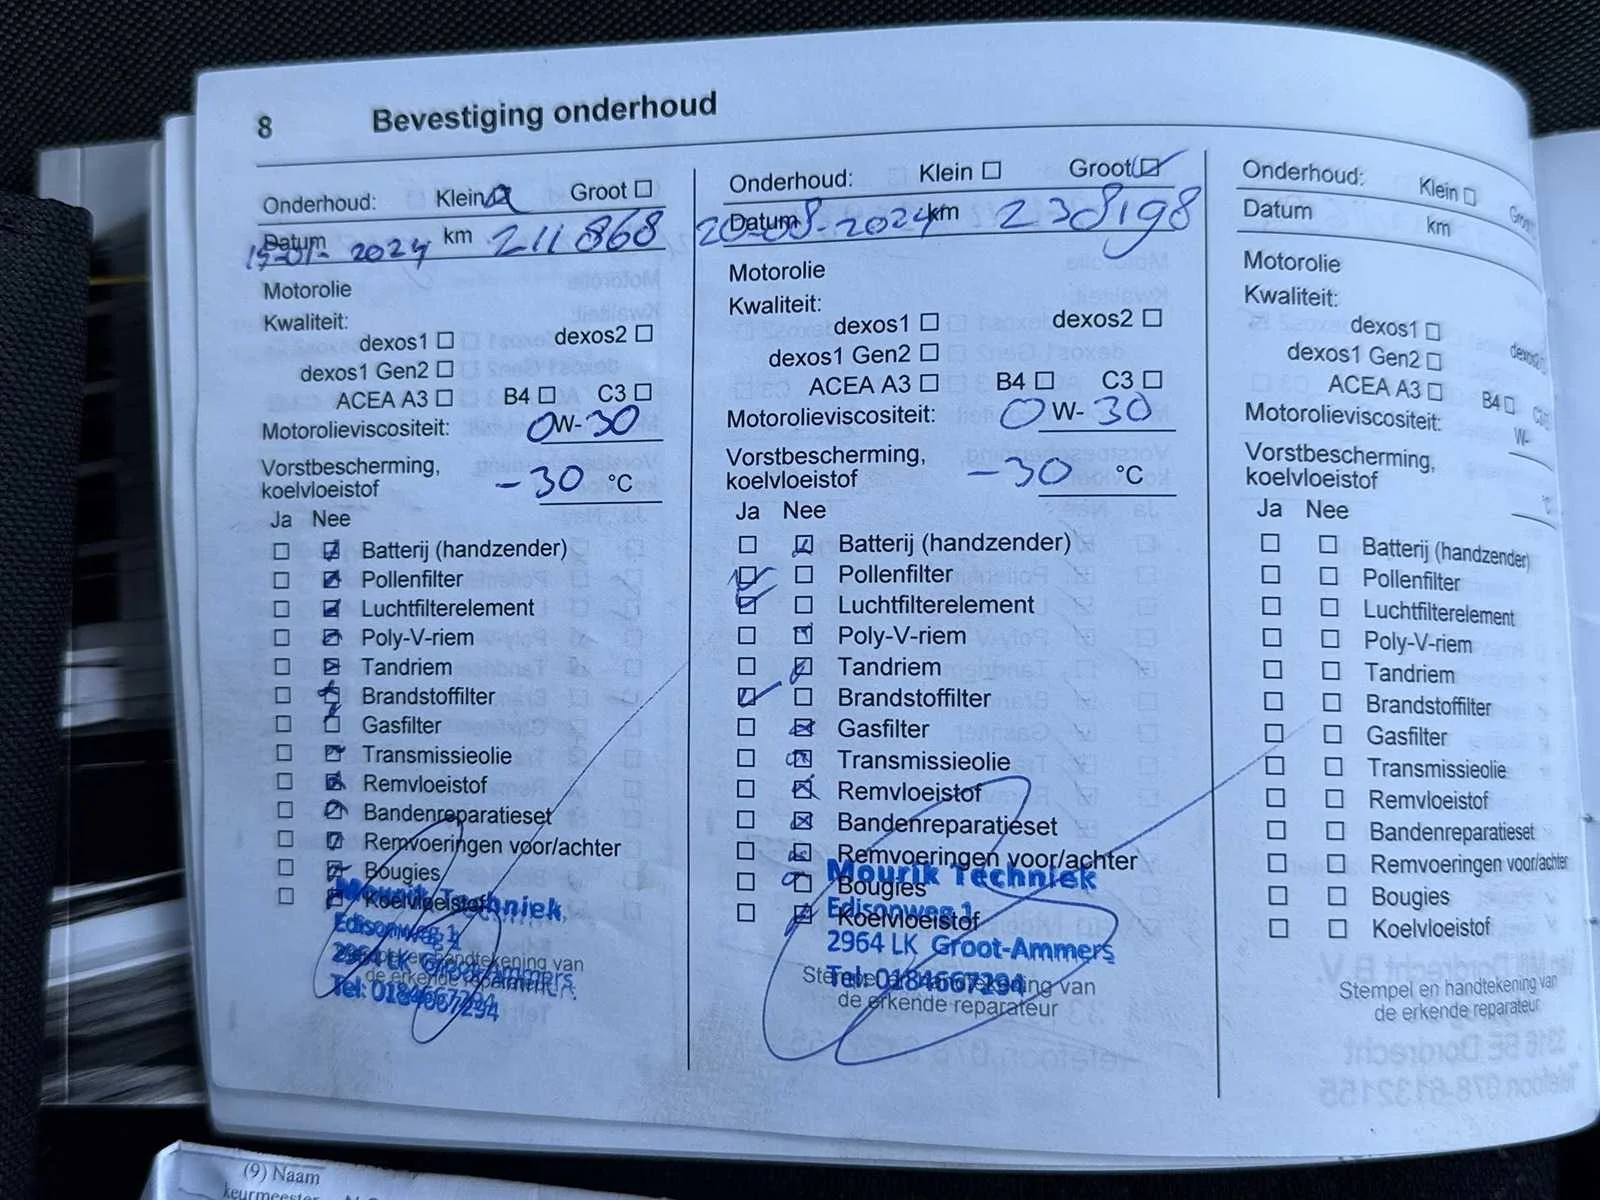 8 Bevestiging onderhoud
Onderhoud: Klein Groot
Datum 15-01-2024 km 211868
Motorolie
Kwaliteit:
dexos1 dexos2
dexos1 Gen2
ACEA A3 B4 C3
Motorolieviscositeit: 0W-30
Vorstbescherming,
koelvloeistof -30 °C
Ja Nee
Batterij (handzender)
Pollenfilter
Luchtfilterelement
Poly-V-riem
Tandriem
Brandstoffilter
Gasfilter
Transmissieolie
Remvloeistof
Bandenreparatieset
Remvoeringen voor/achter
Bougies
Koelvloeistof
Mourik Techniek
Edisonweg 1
2964 LK Groot-Ammers
Tel: 0184667294
handtekening van
de erkende reparateur
Onderhoud: Klein Groot
Datum 20-08-2024 km 238198
Motorolie
Kwaliteit:
dexos1 dexos2
dexos1 Gen2
ACEA A3 B4 C3
Motorolieviscositeit: 0W-30
Vorstbescherming,
koelvloeistof -30 °C
Ja Nee
Batterij (handzender)
Pollenfilter
Luchtfilterelement
Poly-V-riem
Tandriem
Brandstoffilter
Gasfilter
Transmissieolie
Remvloeistof
Bandenreparatieset
Remvoeringen voor/achter
Bougies
Koelvloeistof
Mourik Techniek
Edisonweg 1
2964 LK Groot-Ammers
Tel: 0184667294
Stempel en handtekening van
de erkende reparateur
Onderhoud: Klein Groot
Datum km
Motorolie
Kwaliteit:
dexos1 dexos2
dexos1 Gen2
ACEA A3 B4 C3
Motorolieviscositeit: W-
Vorstbescherming,
koelvloeistof °C
Ja Nee
Batterij (handzender)
Pollenfilter
Luchtfilterelement
Poly-V-riem
Tandriem
Brandstoffilter
Gasfilter
Transmissieolie
Remvloeistof
Bandenreparatieset
Remvoeringen voor/achter
Bougies
Koelvloeistof
Stempel en handtekening van
de erkende reparateur
(9) Naam
keurmeester